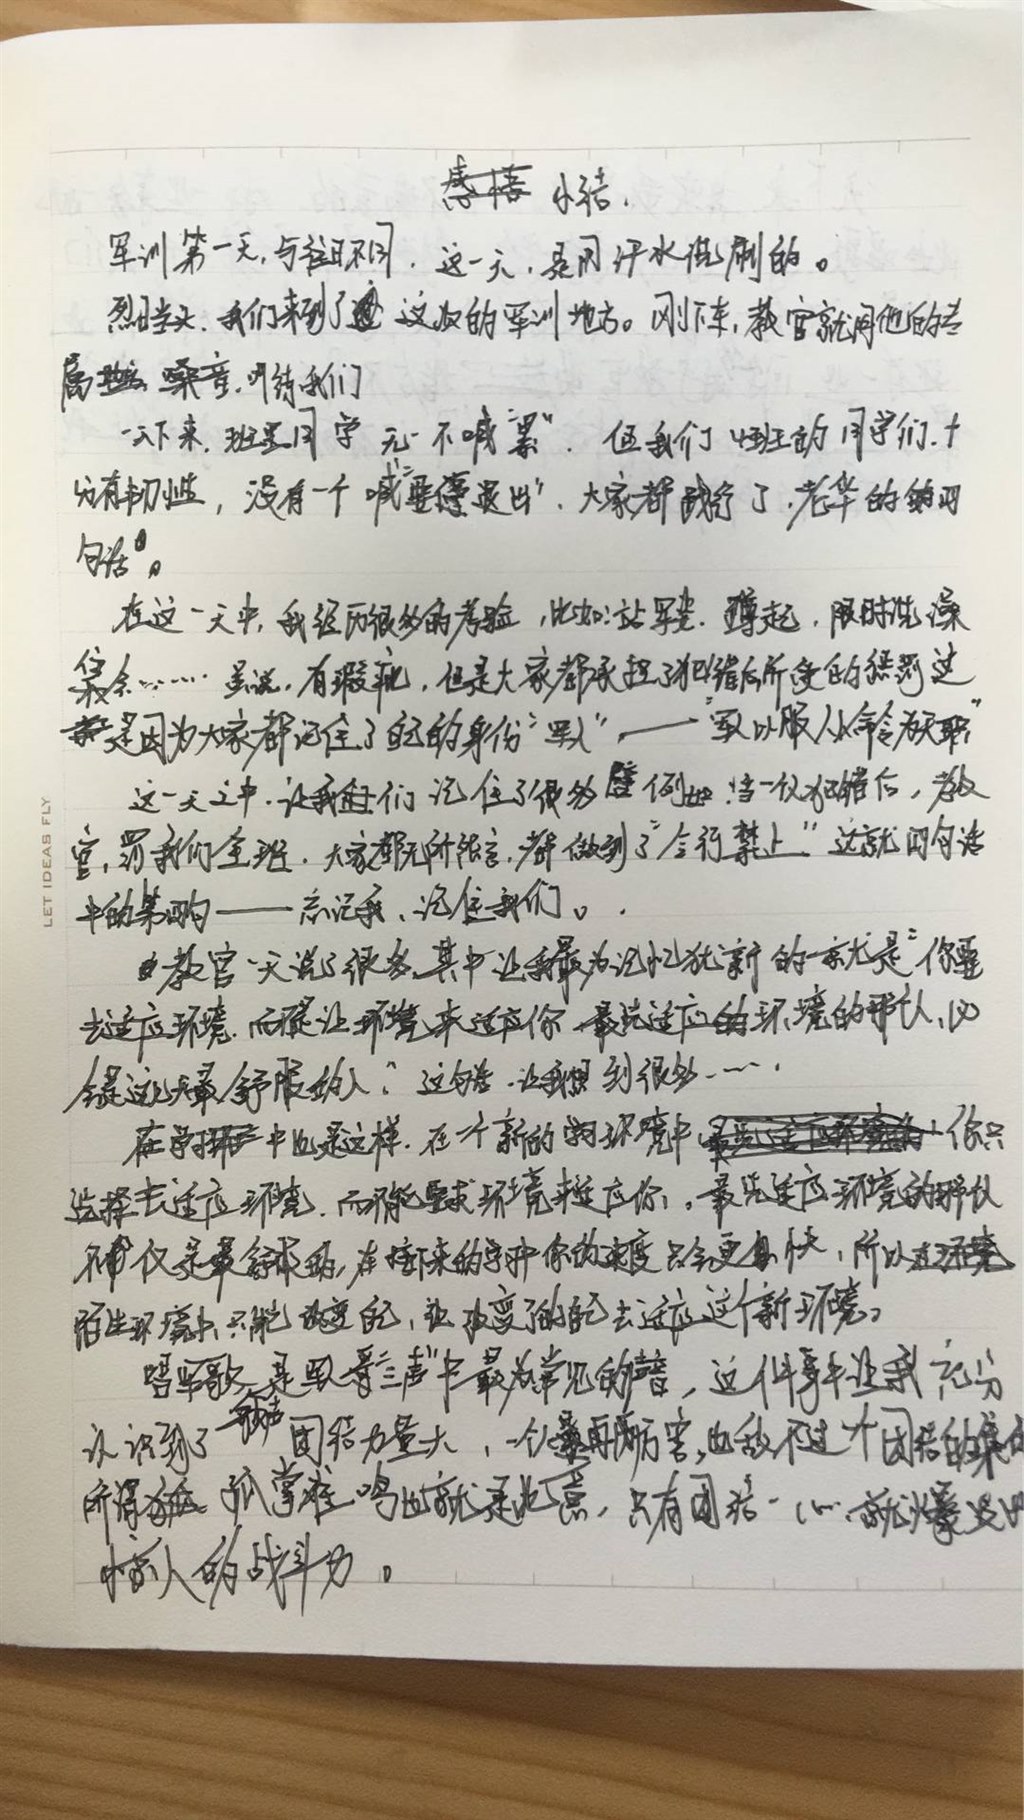 小结.
军训第一天,与往日不同,这一天,是用汗水洗刷的。
烈日当头,我们来到了这次的军训地方。刚下车,教官就用他的专
属嗓音,训练我们
一天下来,班里同学无一不喊"累",但我们班的同学们,十
分有韧性,没有一个喊"要停退出",大家都践行了,老华的四
句话。
在这一天中,我经历很多的考验,比如:站军姿,蹲起,限时洗澡
虽说,有瑕疵,但是大家都承担了犯错后所受的惩罚 这
是因为大家都记住了自己的身份"军人",——"军人以服从命令为天职"
这一天之中,让我们记住了很多 例如:当一人犯错后,教
官,罚我们全班,大家都无所怨言,都做到了"令行禁止"这就四句话
中的第四句——忘记我、记住我们。
教官一天说了很多,其中让我最为记忆犹新的一点就是"你要
去适应环境,而不是让环境来适应你,最先适应的环境的那个人,必
会是这几天最舒服的人"这句话,让我想到很多……
在学习中也是这样,在一个新的学习环境中 你只
选择去适应环境,而不能要求环境来适应你,最先适应环境的那个人
不仅是最舒服的,在接下来的学习中你的速度只会更快,所以
陌生环境中,只能改变自己,让改变了的自己去适应这个新环境。
唱军歌,是军营"三声"中最为常见的声音,这件事中让我充分
认识到了 团结力量大,一个人再厉害,也敌不过一个团结的集体
所谓 孤掌难鸣也就是此意,只有团结一心,就爆发出
惊人的战斗力。
LET IDEAS FLY